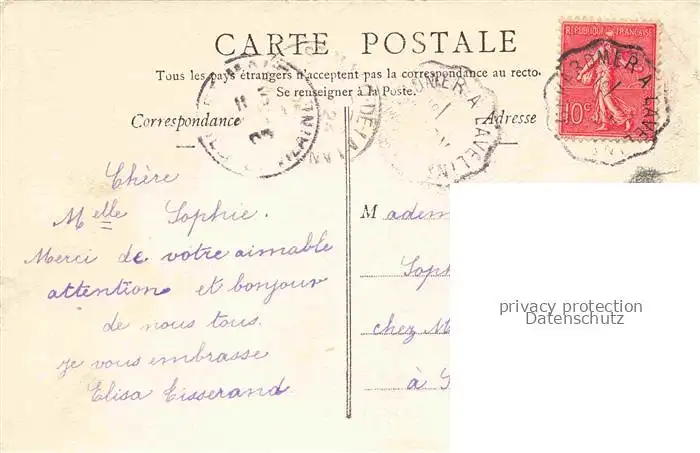 CARTE POSTALE
Tous les pays étrangers n'acceptent pas la correspondance au recto.
Se renseigner à la Poste.
Correspondance
Adresse
REPUBLIQUE FRANÇAISE
10c
MER A LAVELINE
Chère
Melle Sophie.
Merci de votre aimable
attention et bonjour
de nous tous.
je vous embrasse
Elisa Tisserand
Madem
Soph
chez M
à
privacy protection
Datenschutz